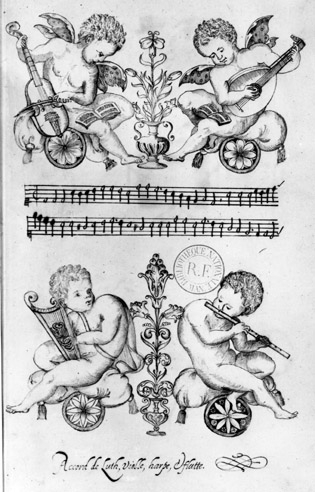 BIBLIOTHEQUE NATIONALE
R.F.
MAN.
Accord de Luth, vielle, harpe, & fluste.